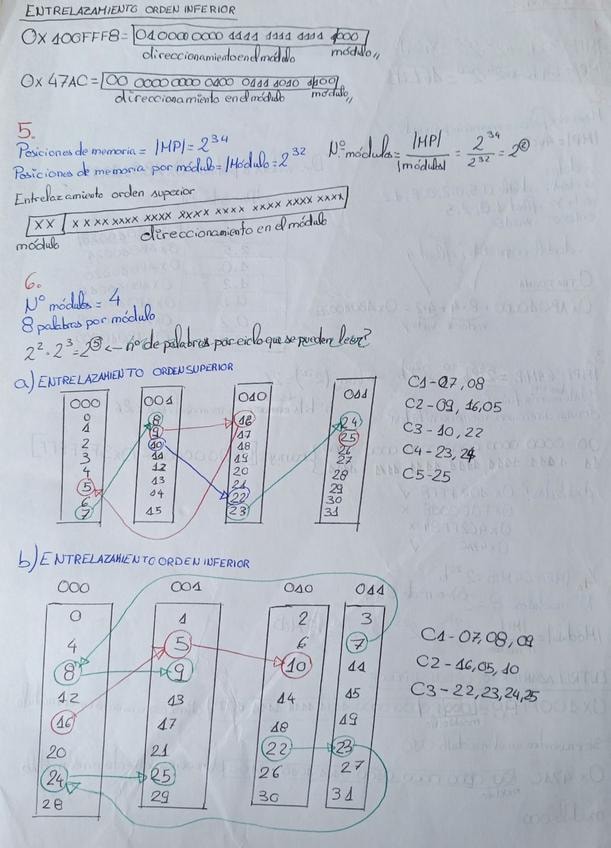 ENTRELAZAMIENTO ORDEN INFERIOR
0x 100FFF8= 01 0000 0000 1111 1111 1111 1000
direccionamiento en el módulo módulo,,
0x 47AC= 00 0000 0000 0100 0111 1010 1100
direccionamiento en el módulo módulo,,
5.
Posiciones de memoria= |MP|= 2^34
Posiciones de memoria por módulo= |Módulo|= 2^32
Nº módulos= |MP| / |módulos| = 2^34 / 2^32 = 2^2
Entrelazamiento orden superior
XX XX XXXX XXXX XXXX XXXX XXXX XXXX XXXX
módulo direccionamiento en el módulo
6.
Nº módulos= 4
8 palabras por módulo
2^2 · 2^3 = 2^5 <- nº de palabras por ciclo que se pueden leer?
a) ENTRELAZAMIENTO ORDEN SUPERIOR
000 001 010 011
0 8 16 24
1 9 17 25
2 10 18 26
3 11 19 27
4 12 20 28
5 13 21 29
6 04 22 30
7 15 23 31
C1-07,08
C2-09, 16,05
C3-10, 22
C4-23, 24
C5-25
b) ENTRELAZAMIENTO ORDEN INFERIOR
000 001 010 011
0 1 2 3
4 5 6 7
8 9 10 11
12 13 14 15
16 17 18 19
20 21 22 23
24 25 26 27
28 29 30 31
C1-07,08,09
C2-16,05,10
C3-22,23,24,25